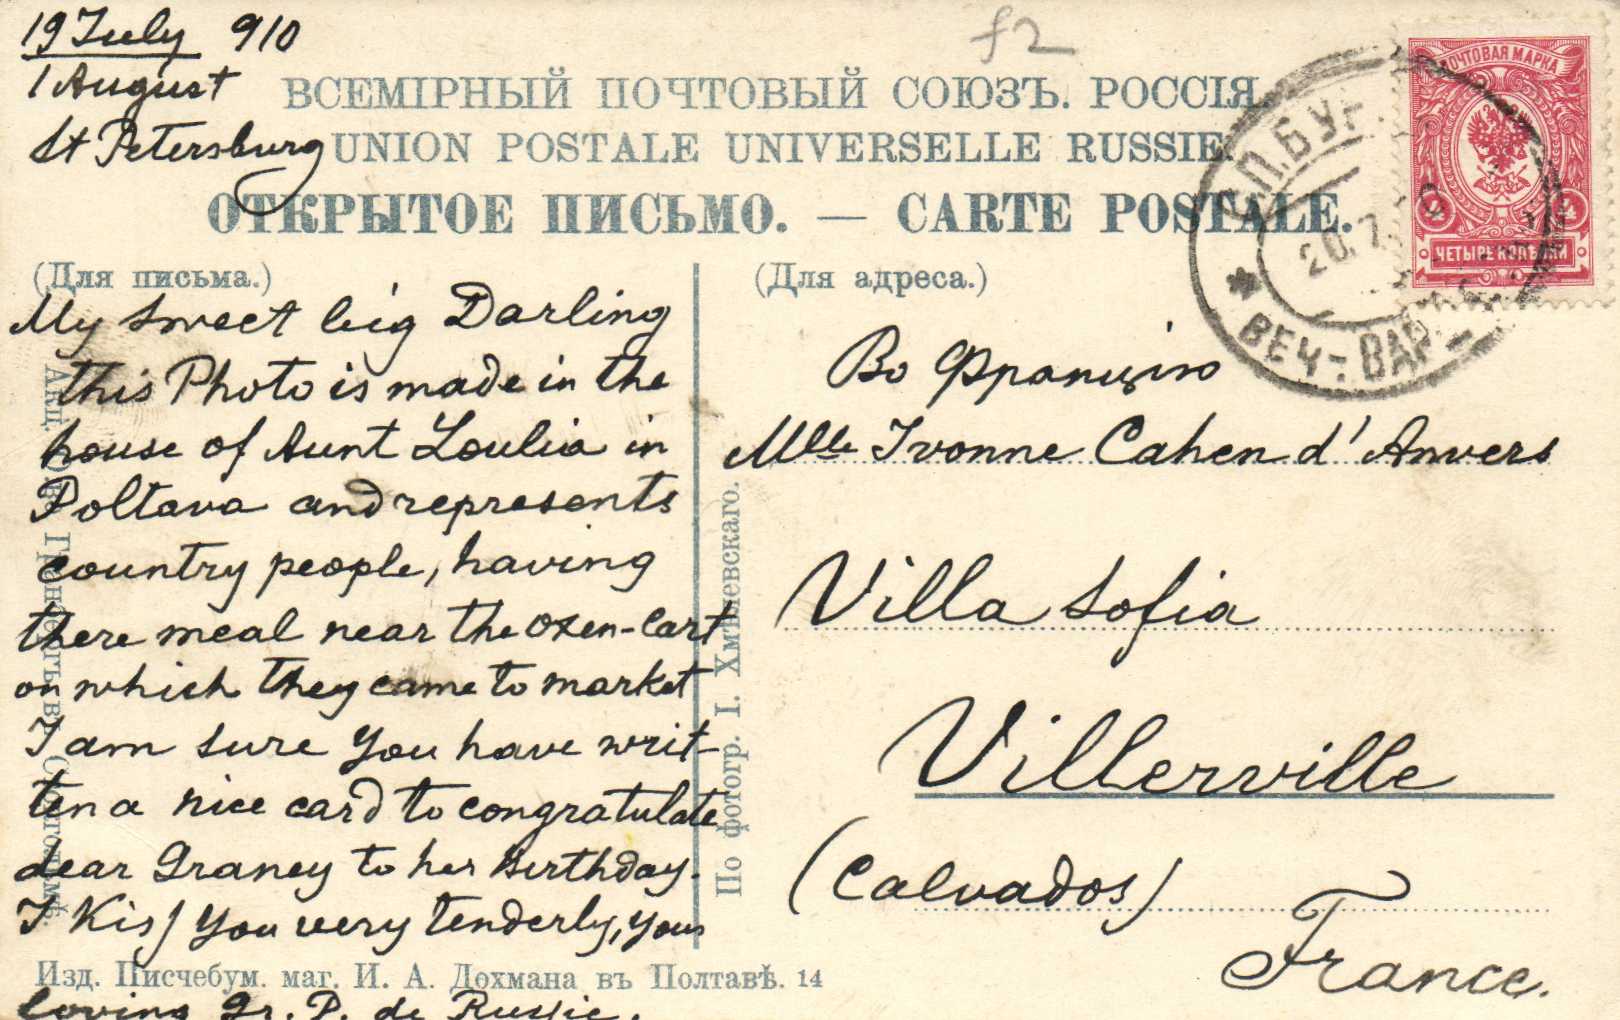 19 July 910
1 August
St Petersburg
f2
ВСЕМІРНЫЙ ПОЧТОВЫЙ СОЮЗЪ. РОССІЯ.
UNION POSTALE UNIVERSELLE RUSSIE.
ОТКРЫТОЕ ПИСЬМО. — CARTE POSTALE.
ПОЧТОВАЯ МАРКА
4 4
ЧЕТЫРЕ КОПѢЙКИ
С.П.БУР
20.7.
ВЕЧ-: ВАР
(Для письма.)
My sweet big Darling
this Photo is made in the
house of Aunt Loulia in
Poltava and represents
country people, having
there meal near the oxen-cart
on which they came to market
I am sure you have writ-
ten a nice card to congratulate
dear Graney to her Birthday.
I Kiss you very tenderly, your
loving Gr. P. de Russie.
(Для адреса.)
Во Францію
Mlle Ivonne Cahen d'Anvers
Villa Sofia
Villerville
(Calvados)
France.
По фотогр. І. Хмѣлевскаго.
Акц. Гранбергъ въ
Изд. Писчебум. маг. И. А. Дохмана въ Полтавѣ. 14